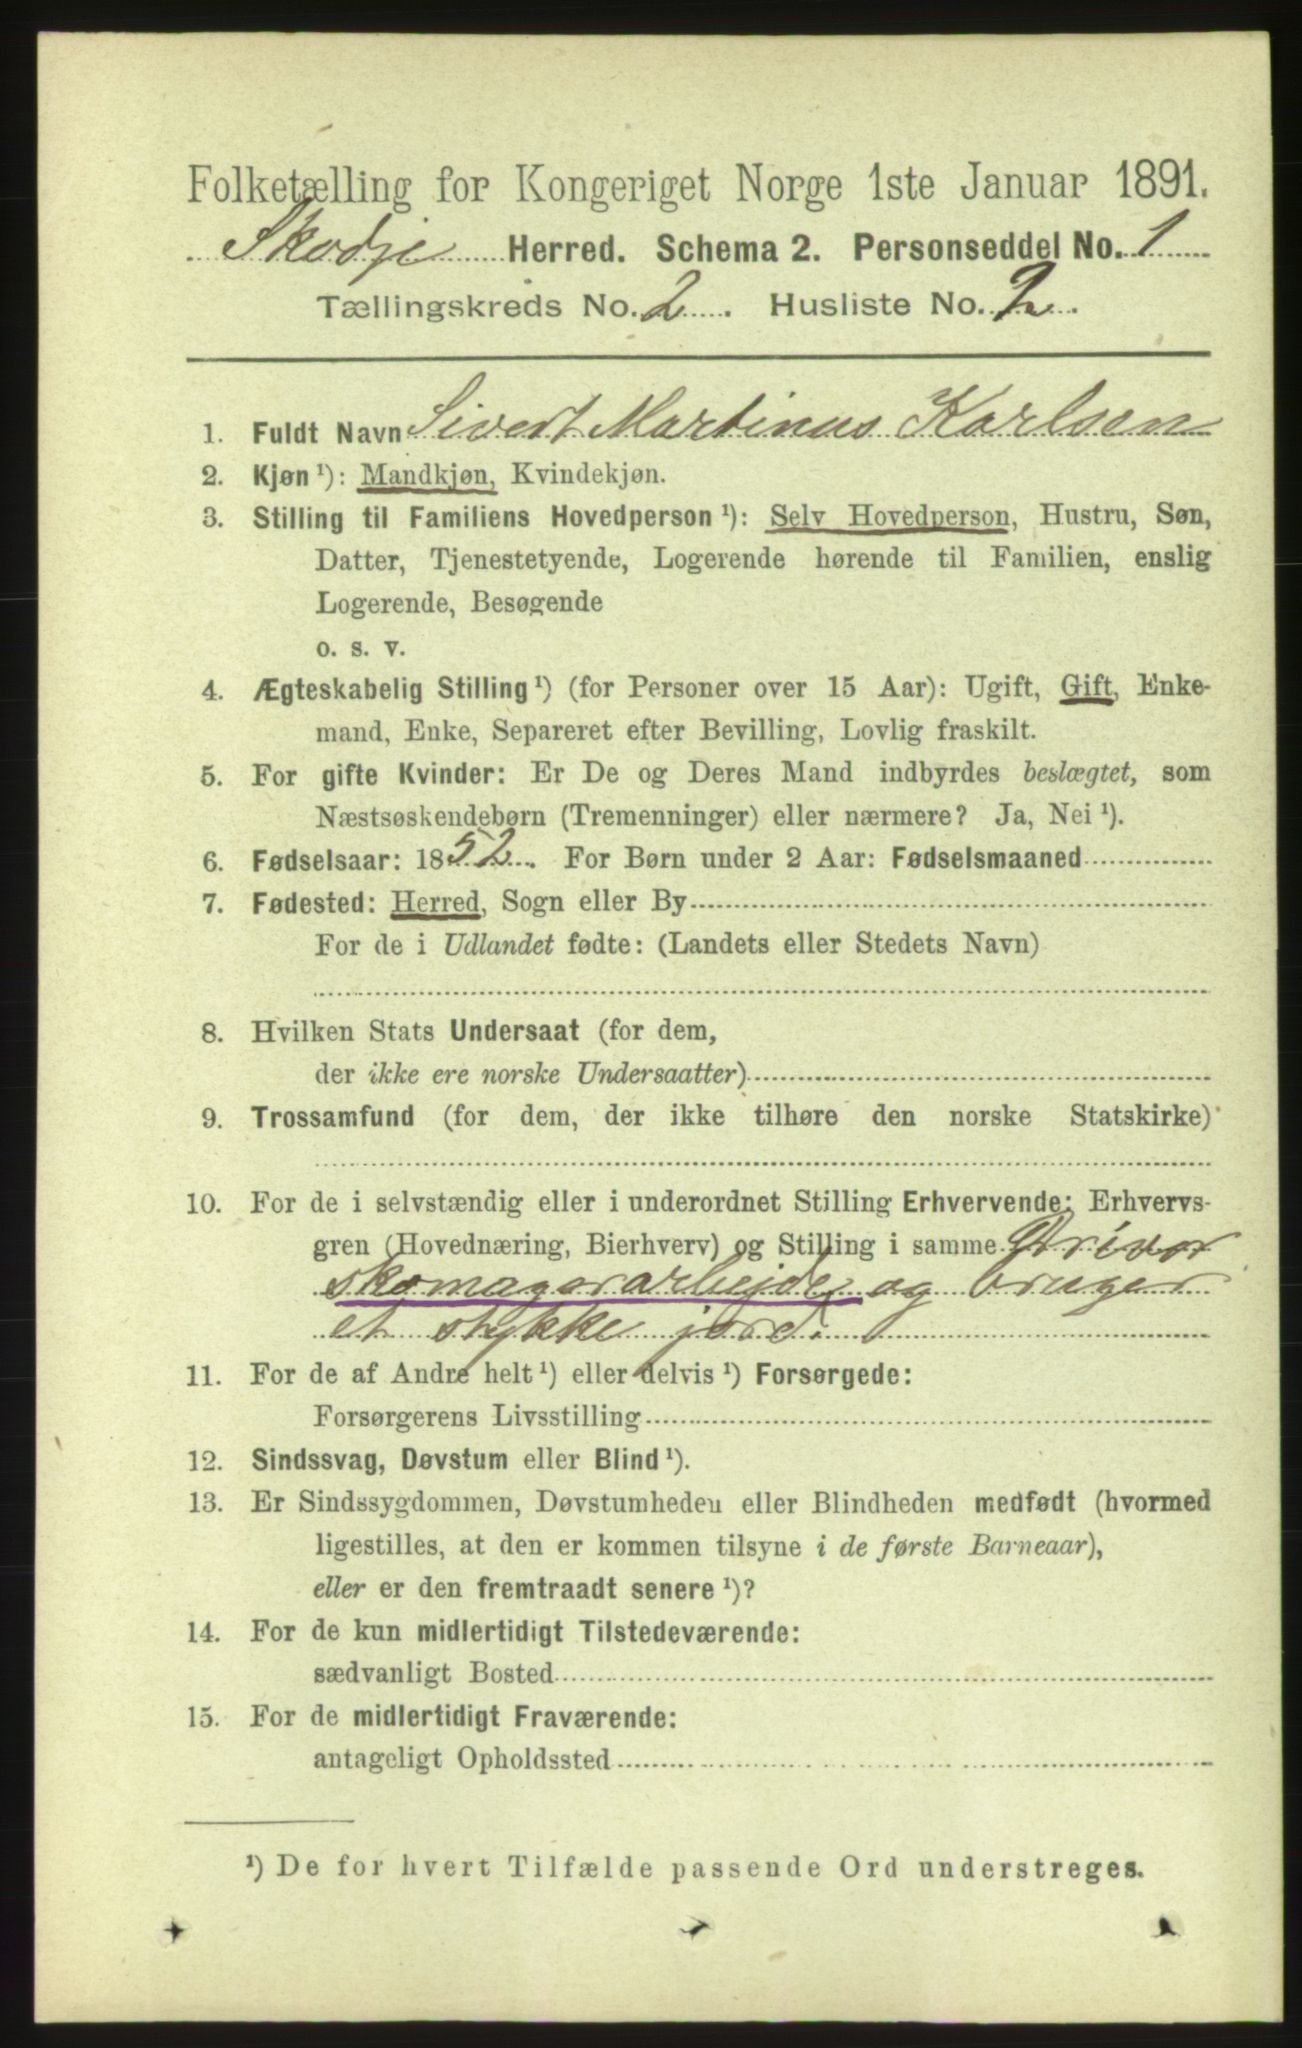 Folketælling for Kongeriget Norge 1ste Januar 1891.
Skodje Herred. Schema 2. Personseddel No. 1
Tællingskreds No. 2. Husliste No. 2.
1. Fuldt Navn Sivert Martinus Karlsen
2. Kjøn ¹): Mandkjøn, Kvindekjøn.
3. Stilling til Familiens Hovedperson ¹): Selv Hovedperson, Hustru, Søn,
Datter, Tjenestetyende, Logerende hørende til Familien, enslig
Logerende, Besøgende
o. s. v.
4. Ægteskabelig Stilling ¹) (for Personer over 15 Aar): Ugift, Gift, Enke-
mand, Enke, Separeret efter Bevilling, Lovlig fraskilt.
5. For gifte Kvinder: Er De og Deres Mand indbyrdes beslægtet, som
Næstsøskendebørn (Tremenninger) eller nærmere? Ja, Nei ¹).
6. Fødselsaar: 1852. For Børn under 2 Aar: Fødselsmaaned
7. Fødested: Herred, Sogn eller By
For de i Udlandet fødte: (Landets eller Stedets Navn)
8. Hvilken Stats Undersaat (for dem,
der ikke ere norske Undersaatter)
9. Trossamfund (for dem, der ikke tilhøre den norske Statskirke)
10. For de i selvstændig eller i underordnet Stilling Erhvervende: Erhvervs-
gren (Hovednæring, Bierhverv) og Stilling i samme Driver
skomagerarbejde og bruger
et stykke jord.
11. For de af Andre helt ¹) eller delvis ¹) Forsørgede:
Forsørgerens Livsstilling
12. Sindssvag, Døvstum eller Blind ¹).
13. Er Sindssygdommen, Døvstumheden eller Blindheden medfødt (hvormed
ligestilles, at den er kommen tilsyne i de første Barneaar),
eller er den fremtraadt senere ¹)?
14. For de kun midlertidigt Tilstedeværende:
sædvanligt Bosted
15. For de midlertidigt Fraværende:
antageligt Opholdssted
¹) De for hvert Tilfælde passende Ord understreges.